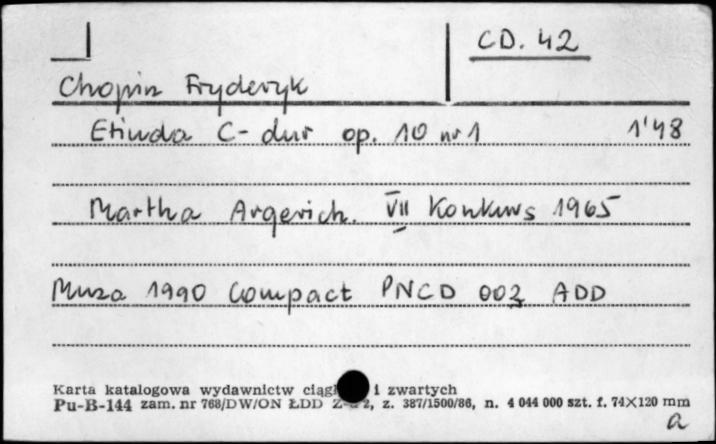 CD. 42
Chopin Fryderyk
Etiuda C-dur op. 10 nr 1 1'48
Martha Argerich. VII Konkurs 1965
Muza 1990 Compact PNCD 002 ADD
Karta katalogowa wydawnictw i zwartych
Pu-B-144 zam. nr 768/DW/ON ŁDD z. 387/1500/86, n. 4 044 000 szt. f. 74X120 mm
a